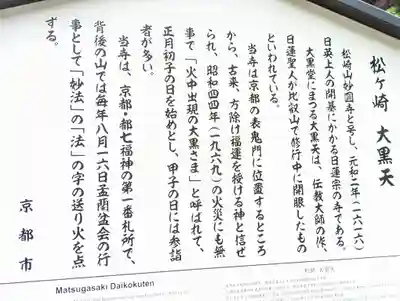 松ケ崎 大黒天
松崎山妙圓寺と号し、元和二年(一六一六)
日英上人の開基にかかる日蓮宗の寺である。
大黒堂にまつる大黒天は、伝教大師の作、
日蓮聖人が比叡山で修行中に開眼したもの
といわれている。
当寺は京都の表鬼門に位置するところ
から、古来、方除け福運を授ける神と信ぜ
られ、昭和四四年(一九六九)の火災にも無
事で「火中出現の大黒さま」と呼ばれて、
正月初子の日を始めとし、甲子の日には参詣
者が多い。
当寺は、京都・都七福神の第一番札所で、
背後の山では毎年八月一六日盂蘭盆会の行
事として「妙法」の「法」の字の送り火を点
ずる。
京都市
Matsugasaki Daikokuten